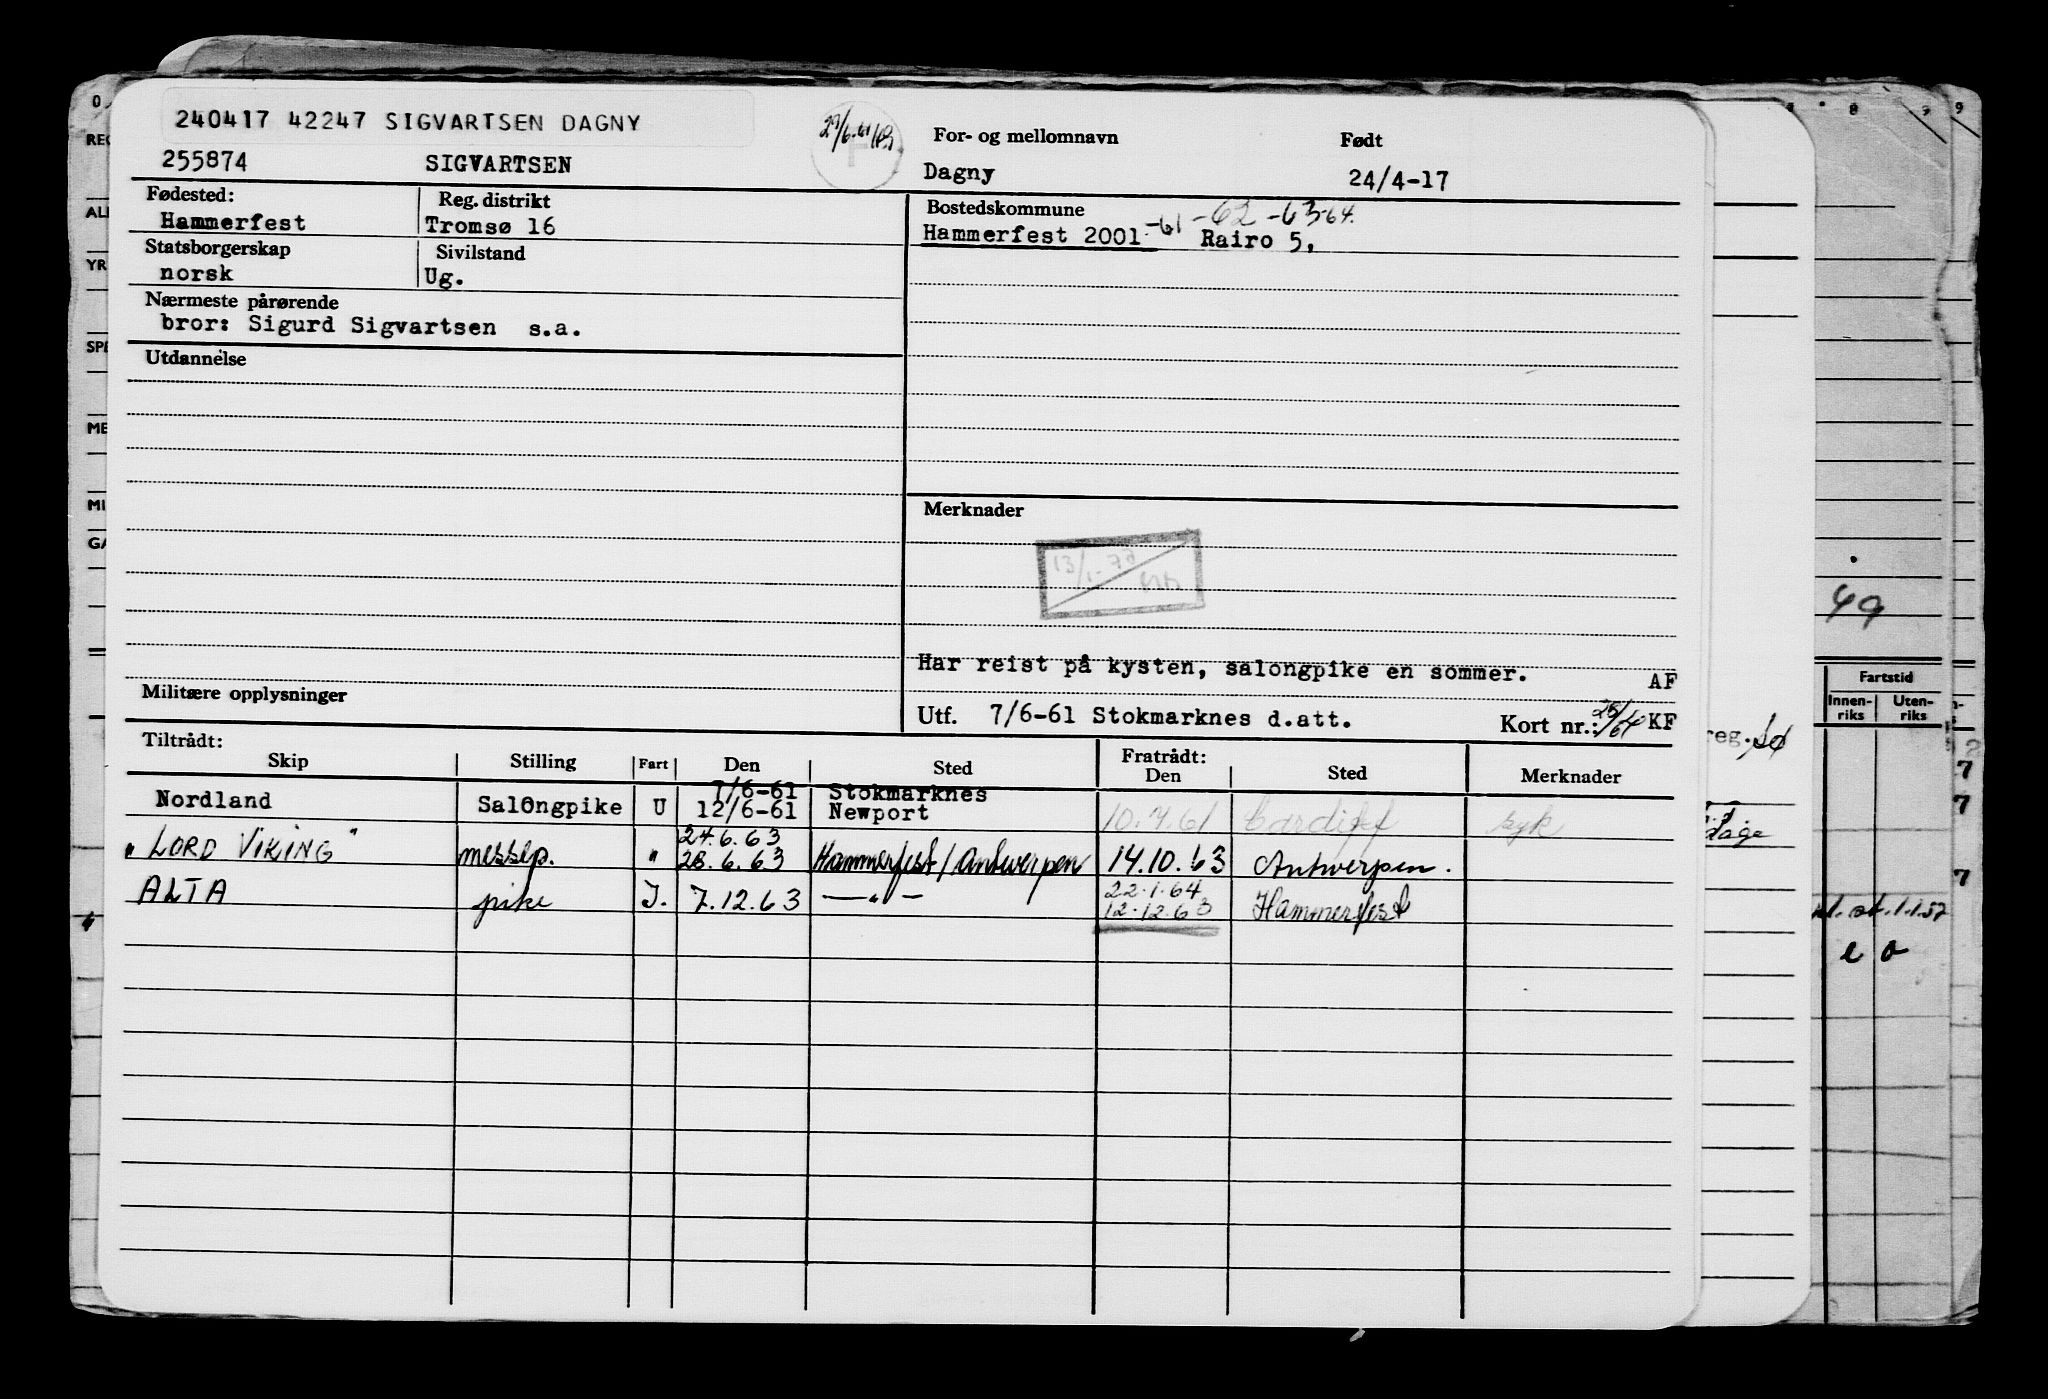 240417 42247 SIGVARTSEN DAGNY
255874 SIGVARTSEN
27/6-61
For- og mellomnavn
Dagny
Født
24/4-17
Fødested:
Hammerfest
Reg. distrikt
Tromsø 16
Statsborgerskap
norsk
Sivilstand
Ug.
Nærmeste pårørende
bror: Sigurd Sigvartsen s.a.
Utdannelse
Militære opplysninger
Bostedskommune
Hammerfest 2001 -61 -62 -63-64.
Rairo 5,
Merknader
13/1-
Har reist på kysten, salongpike en sommer.
AF
Utf. 7/6-61 Stokmarknes d.att.
Kort nr.: KF
Tiltrådt: Fratrådt:
Skip Stilling Fart Den Sted Den Sted Merknader
7/6-61 Stokmarknes
Nordland Salongpike U 12/6-61 Newport 10.7.61 Cardiff syk
24.6.63
"LORD VIKING" messep. " 28.6.63 Hammerfest/Antwerpen 14.10.63 Antwerpen.
22.1.64
ALTA pike I. 7.12.63 —"— 12.12.63 Hammerfest
0
REG
ALI
YR
SPE
ME
MI
GA
8
9
9
49
Fartstid
Innen-
riks
Uten-
riks
reg.
dage
7
7
7
st. 1.1.57
e o